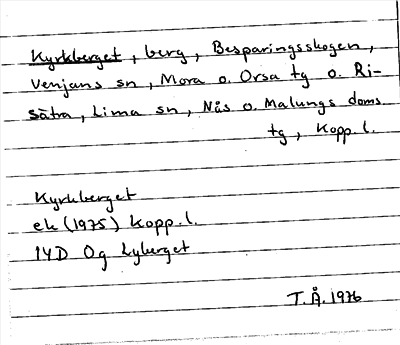 Kyrkberget, berg, Besparingsskogen,
Venjans sn, Mora o. Orsa tg o. Ri-
sätra, Lima sn, Nås o. Malungs doms.
tg, Kopp. l.
Kyrkberget
ek (1975) Kopp. l.
14D Og Lyberget
T.Å. 1976